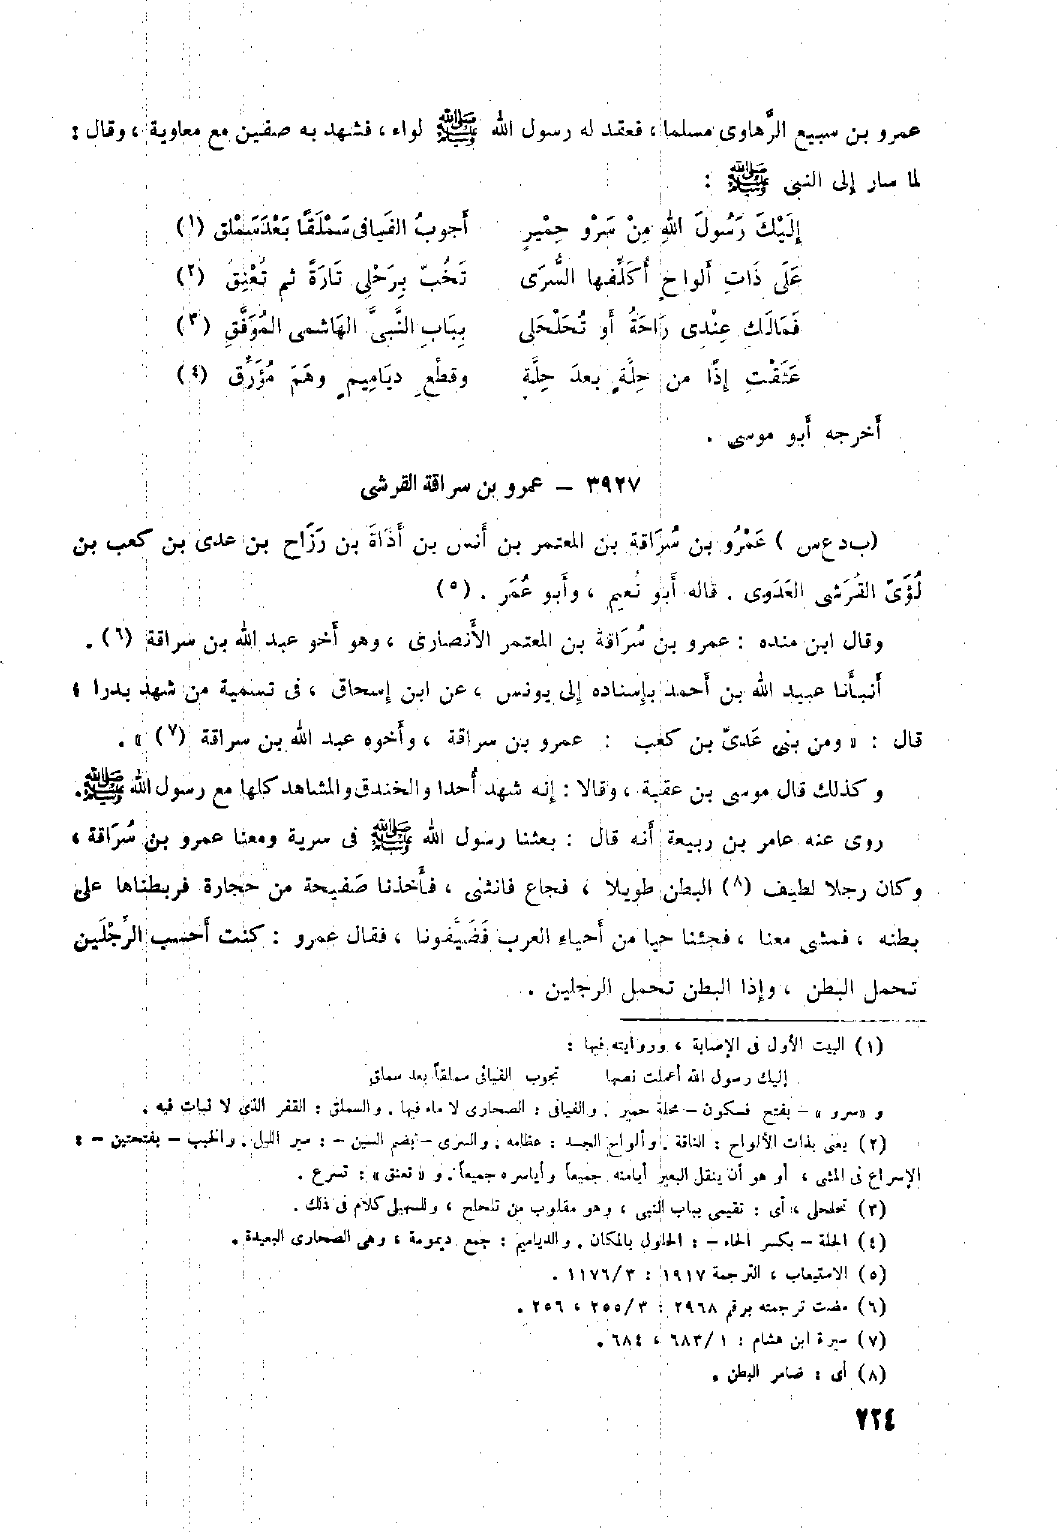 عمرو بن سبيع الرَّهاوى مسلما ، فعقد له رسول الله ﷺ لواء ، فشهد به صفين مع معاوية ، وقال :
لما سار إلى النبى ﷺ :
إِلَيْكَ رَسُولَ اللهِ مِنْ سَرْوِ حِمْيرٍ أَجوبُ الفَيافى سَمْلَقًا بَعْدَ سَمْلق (١)
عَلَى ذَاتِ أَلواحٍ أُكَلِّفها السُّرَى تَخُبّ بِرَحْلِى تَارَةً ثم تُعْنِقُ (٢)
فَمَالَكِ عِنْدِى رَاحَةٌ أَو تُحَلْحَلى بِبَابِ النَّبىَّ الهَاشمى المُوَفَّقِ (٣)
عَتَقْتِ إِذًا من حِلَّةٍ بعدَ حِلَّةٍ وقطْعِ ديَامِيمٍ وهَمّ مُؤَرِّق (٤)
أَخرجه أَبو موسى .
٣٩٢٧ – عمرو بن سراقة القرشى
(ب د ع س ) عَمْرُو بن سُرَاقة بن المعتمر بن أَنس بن أَذَاةَ بن رَزَاح بن عدى بن كعب بن
لُؤَىّ القُرَشى العَدَوى . قاله أَبو نُعيم ، وأَبو عُمَر . (٥)
وقال ابن منده : عمرو بن سُرَاقة بن المعتمر الأَنصارى ، وهو أَخو عبد الله بن سراقة (٦) .
أَنبأَنا عبيد الله بن أَحمد بإِسناده إلى يونس ، عن ابن إسحاق ، فى تسمية من شهد بدرا ؛
قال : « ومن بنى عَدىّ بن كعب : عمرو بن سراقة ، وأَخوه عبد الله بن سراقة (٧) » .
وكذلك قال موسى بن عقبة ، وقالا : إنه شهد أُحدا والخندق والمشاهد كلها مع رسول الله ﷺ .
روى عنه عامر بن ربيعة أَنه قال : بعثنا رسول الله ﷺ فى سرية ومعنا عمرو بن سُرَاقة ،
وكان رجلا لطيف (٨) البطن طويلا ، فجاع فانثنى ، فأَخذنا صَفيحة من حجارة فربطناها على
بطنه ، فمشى معنا ، فجئنا حيا من أَحياءِ العرب فَضَيَّفونا ، فقال عمرو : كنت أَحسب الرِّجْلَين
تحمل البطن ، وإذا البطن تحمل الرجلين .
(١) البيت الأول فى الإصابة ، وروايته فيها :
إليك رسول الله أعملت نصها تجوب الفيافى سملقاً بعد سملق
و « سرو » – بفتح فسكون – محلة حمير . والفيافى : الصحارى لا ماء فيها . والسملق : القفر الذى لا نبات فيه .
(٢) يعنى بذات الألواح : الناقة . وألواح الجسد : عظامه . والسرى – بضم السين – : سير الليل . والخبب – بفتحتين – :
الإسراع فى المشى ، أو هو أن ينقل البعير أيامنه جميعاً وأياسره جميعاً . و « تعنق » : تسرع .
(٣) تحلحلى ، أى : تقيمى بباب النبى ، وهو مقلوب من تلحلح ، وللسهيلى كلام فى ذلك .
(٤) الحلة – بكسر الحاء – : الحلول بالمكان . والدياميم : جمع ديمومة ، وهى الصحارى البعيدة .
(٥) الاستيعاب ، الترجمة ١٩١٧ : ٣/ ١١٧٦ .
(٦) مضت ترجمته برقم ٢٩٦٨ : ٣/ ٢٥٥ ، ٢٥٦ .
(٧) سيرة ابن هشام : ١/ ٦٨٣ ، ٦٨٤ .
(٨) أى : ضامر البطن .
٧٢٤